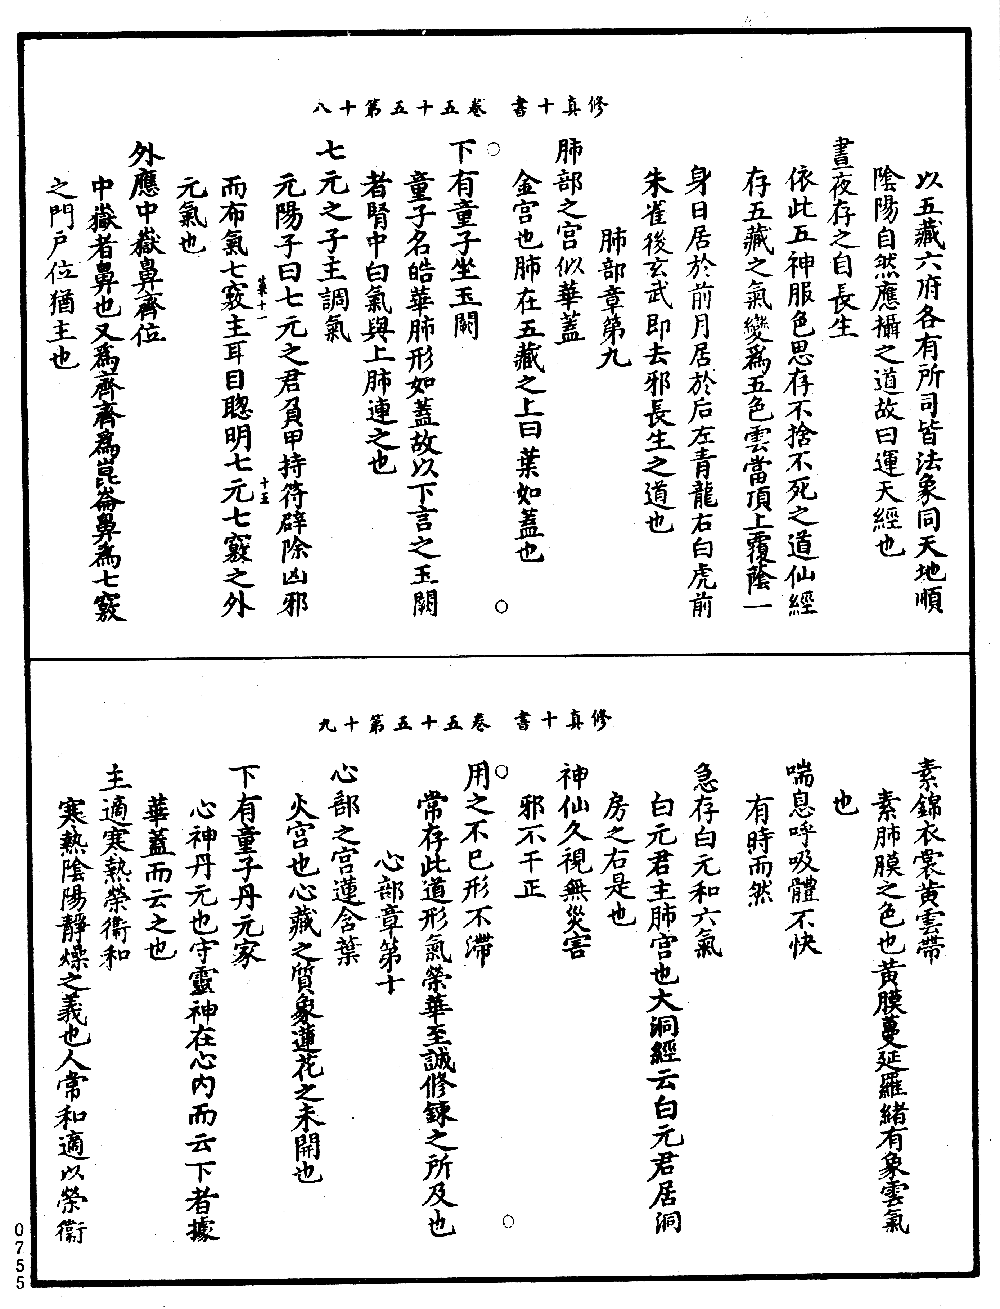 修真十書　卷五十五第十八
以五藏六府各有所司皆法象同天地順
陰陽自然應攝之道故曰運天經也
晝夜存之自長生
依此五神服色思存不捨不死之道仙經
存五藏之氣變爲五色雲當頂上覆蔭一
身日居於前月居於后左青龍右白虎前
朱雀後玄武即去邪長生之道也
肺部章第九
肺部之宮似華蓋
金宮也肺在五藏之上曰葉如蓋也
下有童子坐玉闕
童子名皓華肺形如蓋故以下言之玉闕
者腎中白氣與上肺連之也
七元之子主調氣
元陽子曰七元之君負甲持符辟除凶邪
而布氣七竅主耳目聰明七元七竅之外
元氣也
菓十一
十五
外應中嶽鼻齊位
中嶽者鼻也又爲齊齊爲崑崙鼻爲七竅
之門戶位猶主也
修真十書　卷五十五第十九
素錦衣裳黃雲帶
素肺膜之色也黃膜蔓延羅緒有象雲氣
也
喘息呼吸體不快
有時而然
急存白元和六氣
白元君主肺宮也大洞經云白元君居洞
房之右是也
神仙久視無災害
邪不干正
用之不已形不滯
常存此道形氣榮華至誠修鍊之所及也
心部章第十
心部之宮蓮含葉
火宮也心藏之質象蓮花之未開也
下有童子丹元家
心神丹元也守靈神在心内而云下者據
華蓋而云之也
主適寒熱榮衛和
寒熱陰陽靜燥之義也人常和適以榮衛
0755